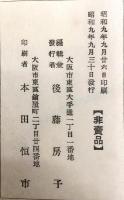 昭和九年九月廿六日印刷
昭和九年九月三十日発行
【非売品】
大阪市東区大手通二丁目一番地
編輯兼
発行者
後藤房子
大阪市東区鎗屋町二丁目廿四番地
印刷者
本田恒市